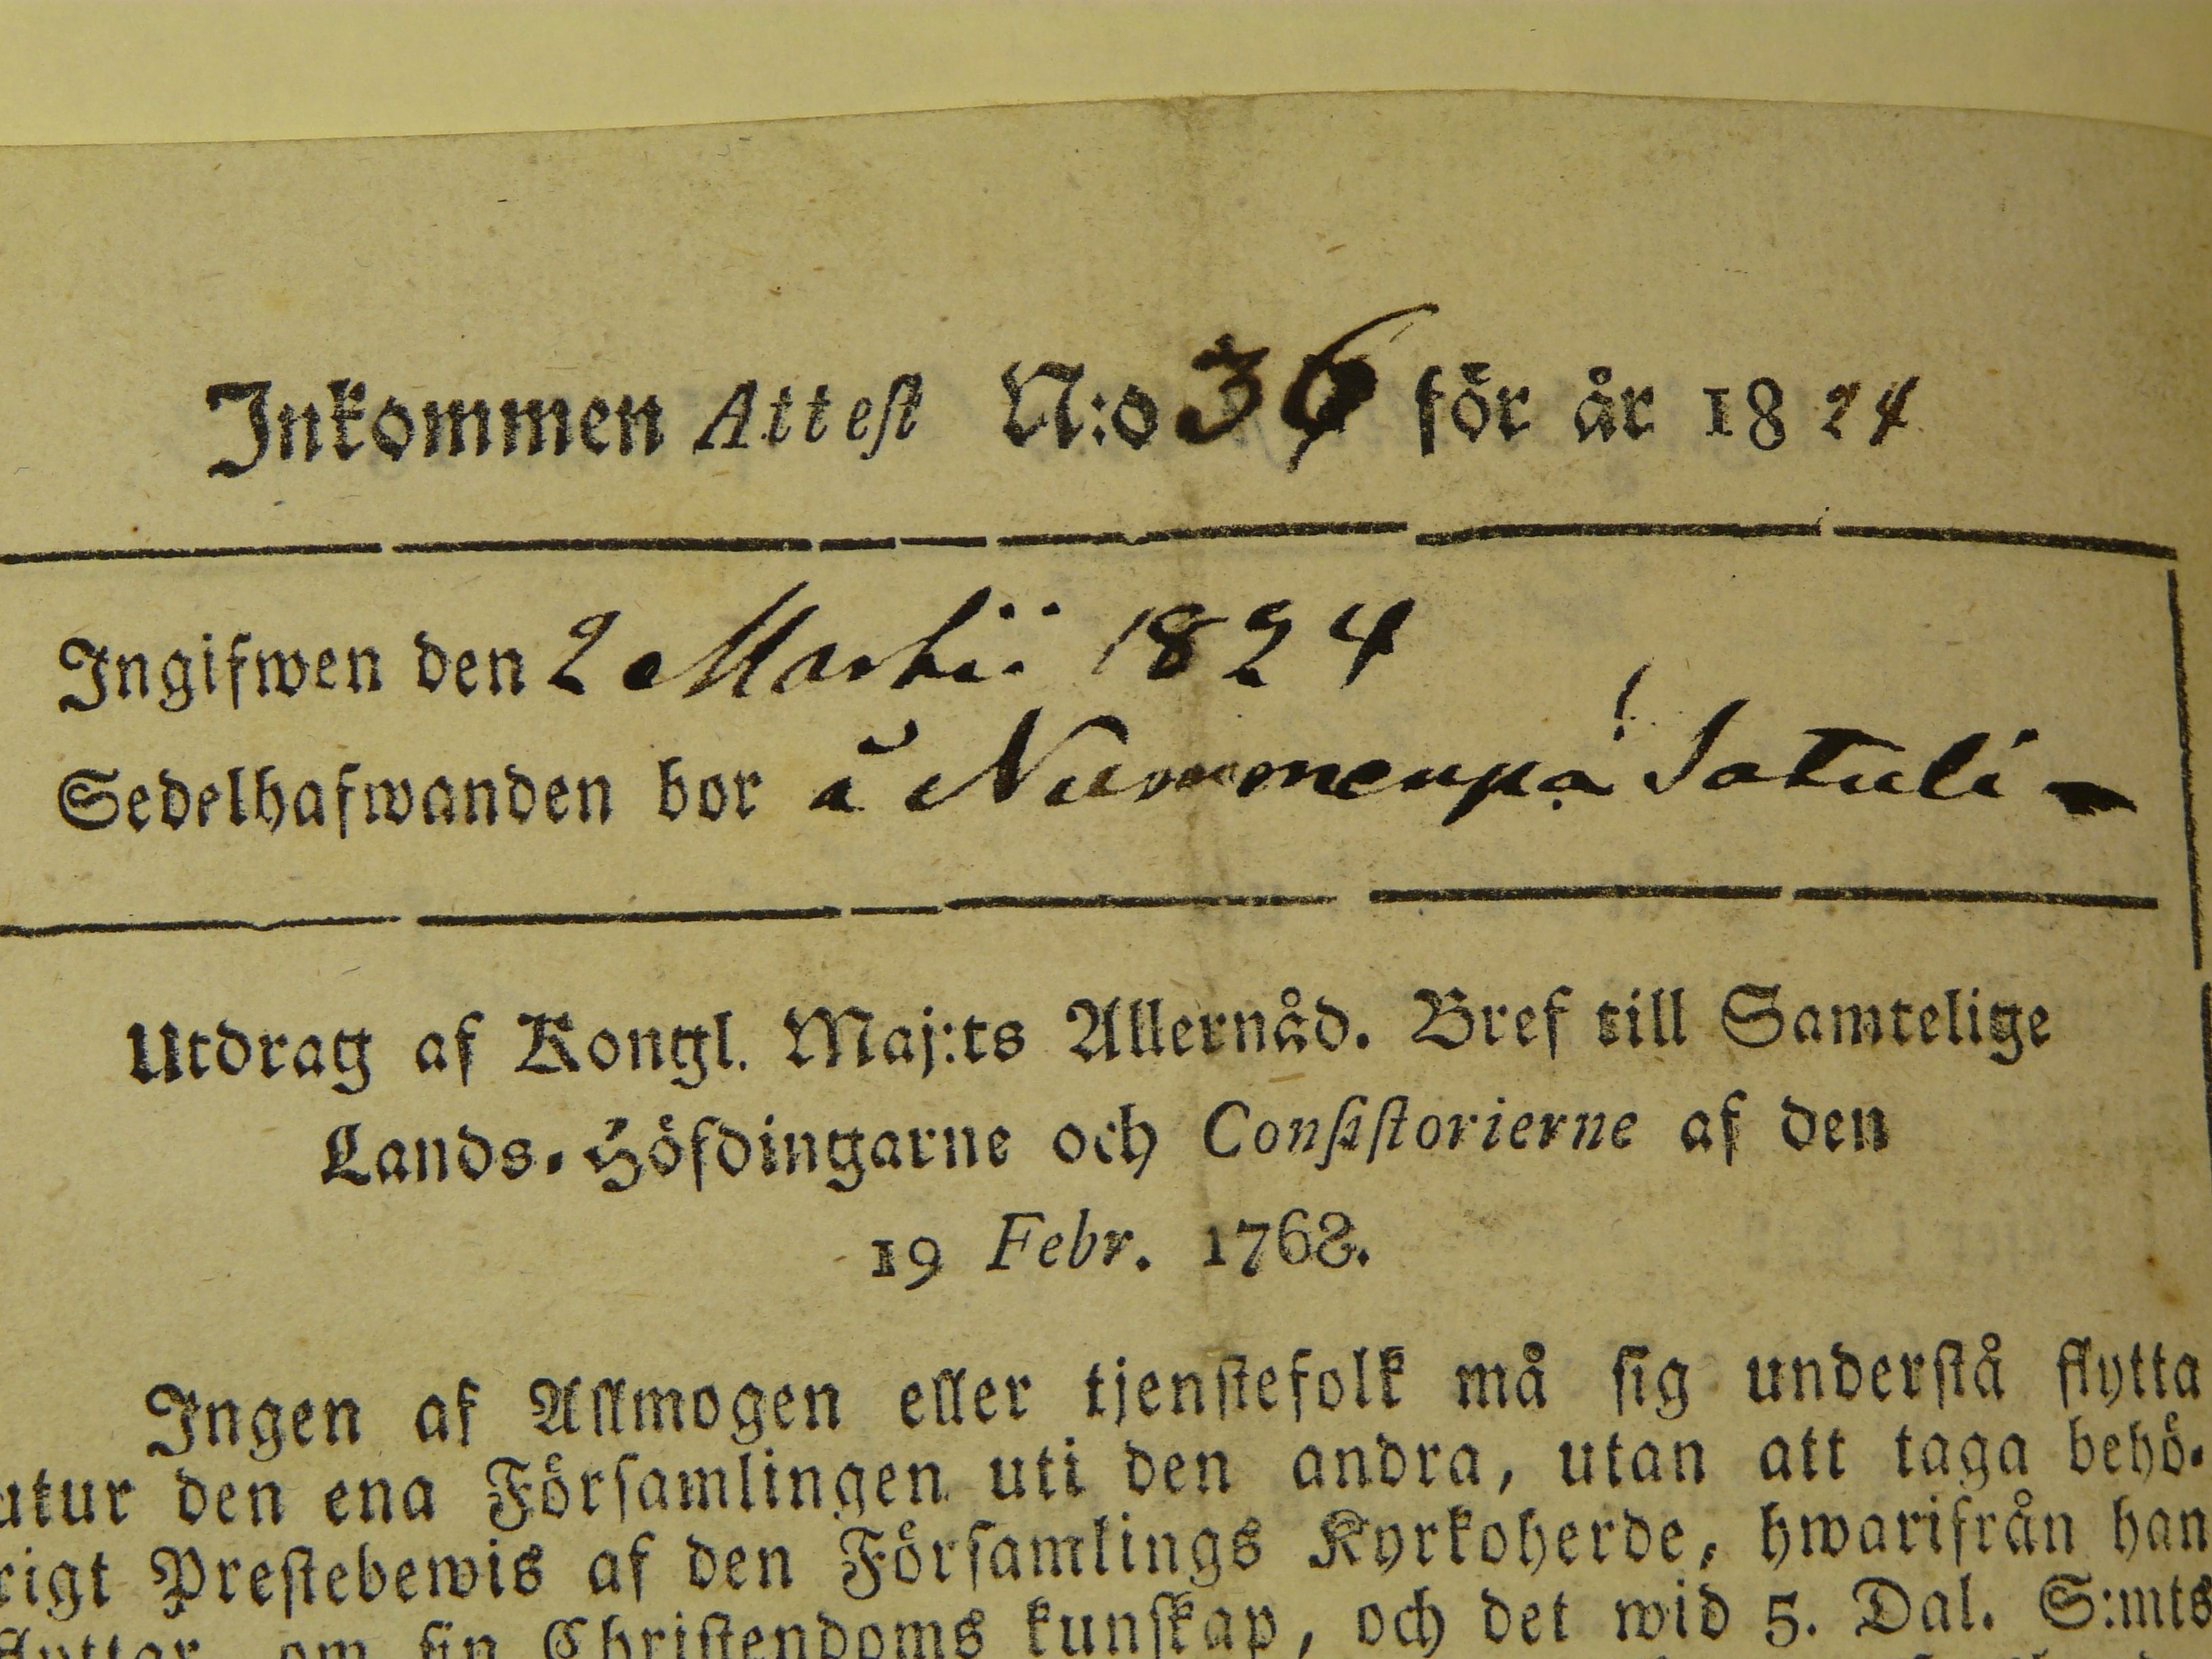 Inkommen Attest N:o 36 för år 1824
Ingifwen den 2 Martii 1824
Sedelhafwanden bor å Nummenpä! Jatuli -
Utdrag af Kongl. Maj:ts Allernåd. Bref till Samtelige
Lands-Höfdingarne och Consistorierne af den
19 Febr. 1768.
Ingen af Allmogen eller tjenstefolk må sig understå flytta
utur den ena Församlingen uti den andra, utan att taga behö-
rigt Prestebewis af den Församlings Kyrkoherde, hwarifrån han
flyttar, om sin Christendoms kunskap, och det wid 5. Dal. S:mts